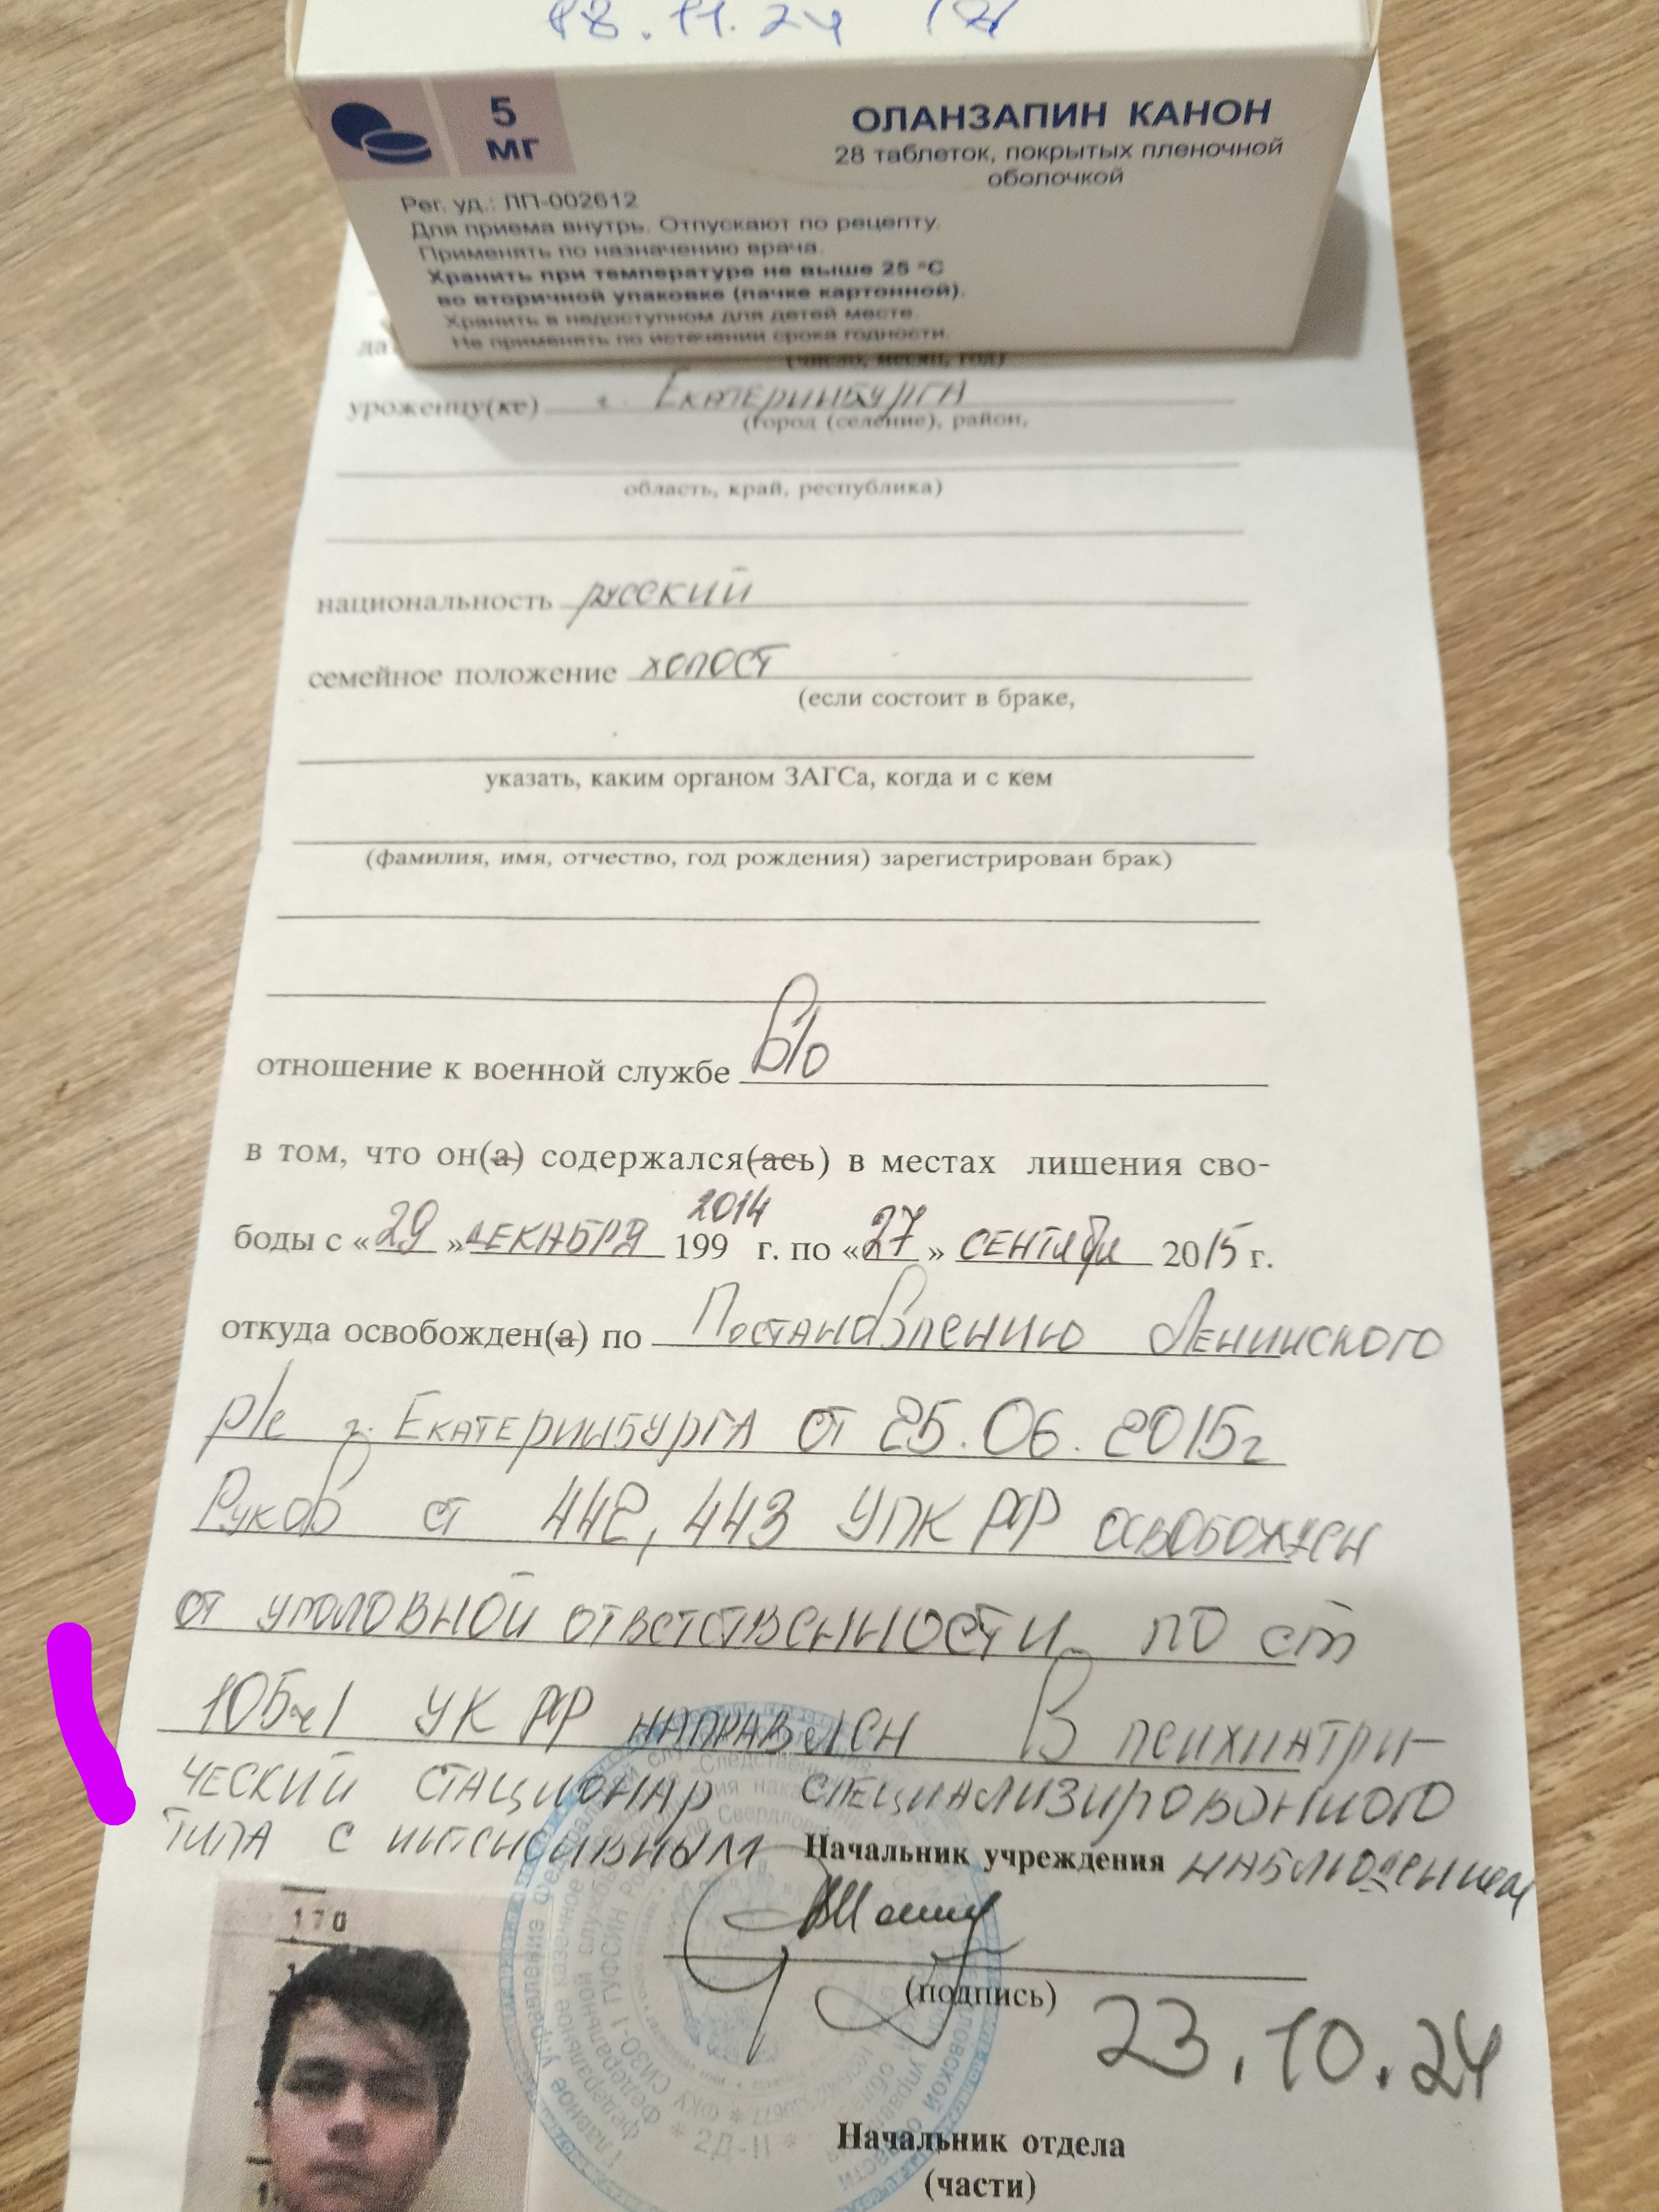 18.11.24
5
мг
ОЛАНЗАПИН КАНОН
28 таблеток, покрытых пленочной
оболочкой
Рег. уд.: ЛП-002612
Для приема внутрь. Отпускают по рецепту.
Применять по назначению врача.
Хранить при температуре не выше 25 °С
во вторичной упаковке (пачке картонной).
Хранить в недоступном для детей месте.
Не применять по истечении срока годности.
(число, месяц, год)
уроженцу(ке) г. Екатеринбурга
(город (селение), район,
область, край, республика)
национальность русский
семейное положение холост
(если состоит в браке,
указать, каким органом ЗАГСа, когда и с кем
(фамилия, имя, отчество, год рождения) зарегистрирован брак)
отношение к военной службе в/о
в том, что он(а) содержался(ась) в местах лишения сво-
2014
боды с «29» декабря 199 г. по «27» сентября 2015 г.
откуда освобожден(а) по Постановлению Ленинского
р/с г. Екатеринбурга от 25.06.2015г
Руков ст 442, 443 УПК РФ освобожден
от уголовной ответственности по ст
105ч1 УК РФ направлен В психиатри-
ческий стационар специализированного
типа с интенсивным наблюдением
Начальник учреждения
170
(подпись)
23.10.24
Начальник отдела
(части)
2Д-11